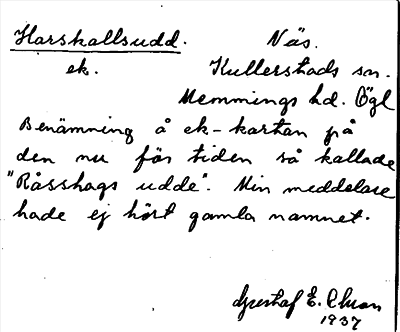 Harskallsudd. Näs.
ek. Kullerstads sn.
Memmings hd. Ögl
Benämning å ek-kartan på
den nu för tiden så kallade
"Råsshags udde". Min meddelare
hade ej hört gamla namnet.
Gustaf E.
1937